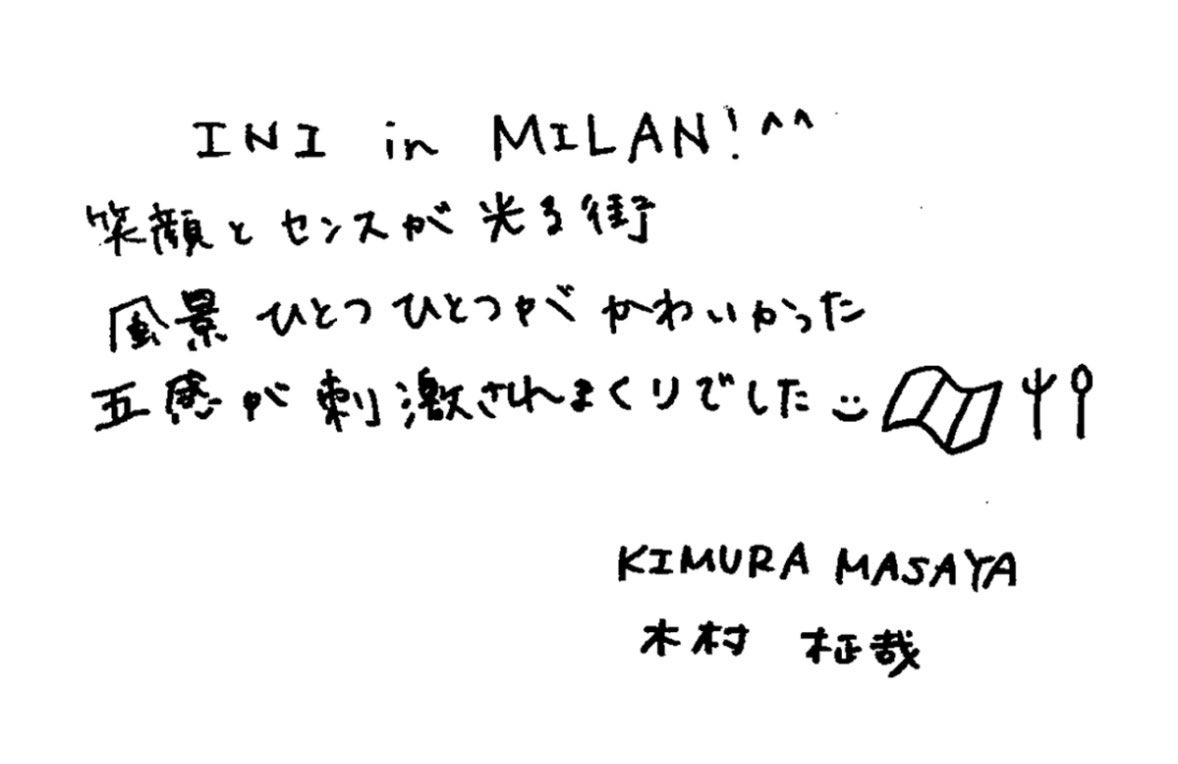 INI in MILAN! ^^
笑顔とセンスが光る街
風景ひとつひとつがかわいかった
五感が刺激されまくりでした
KIMURA MASAYA
木村 柾哉